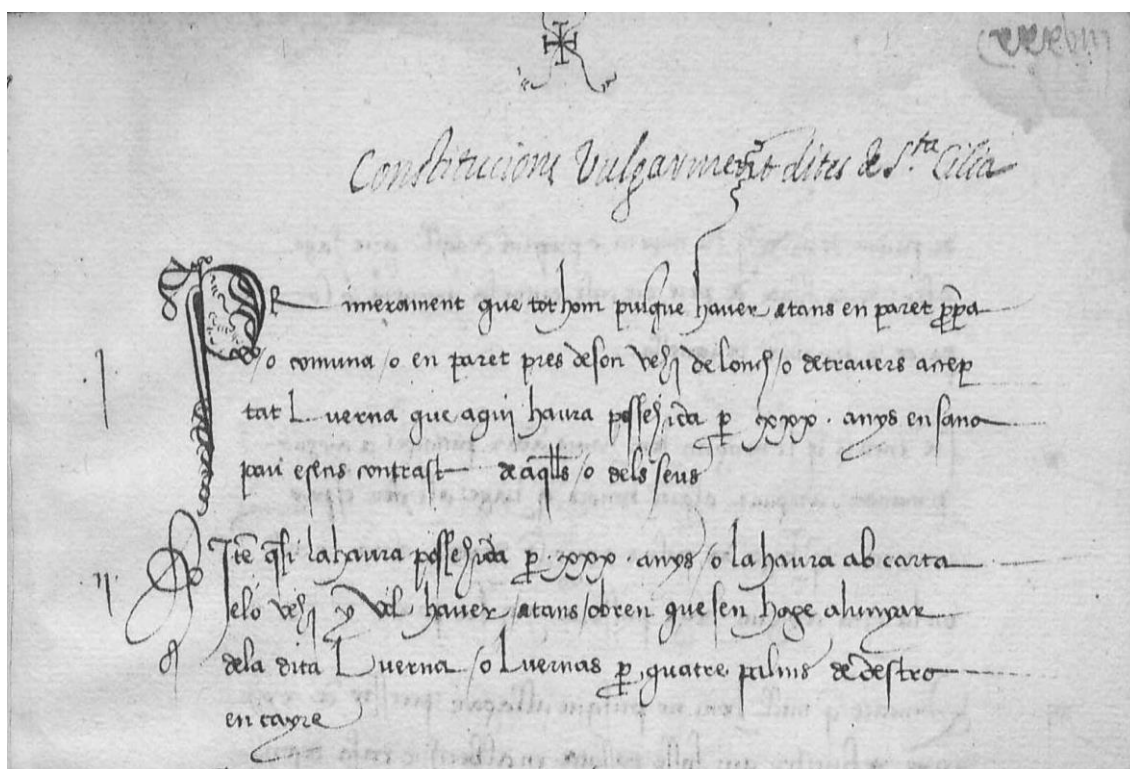 Constitucions Vulgarment dites de S.ta Cilia
I Primerament que tot hom pusque haver atans en paret ppa
/o comuna /o en paret pres de son vehi de lonch /o de travers accep
tat Luverna que aqui haura possehida p xxx . anys en sana
pau e sens contrast de aqlls /o dels seus
II Ite q si la haura possehida p . xxx . anys /o la haura ab carta
e lo vehi y vol haver atans /obren que sen hage alunyar
de la dita Luverna /o Luvernas p quatre palms de destre
en cayre